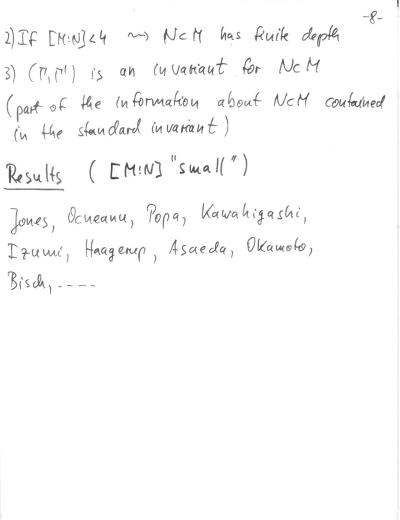 -8-
2) If [M:N]<4 ⇝ N⊂M has finite depth
3) (Γ, Γ') is an invariant for N⊂M
(part of the information about N⊂M contained
in the standard invariant)
Results ([M:N] "small")
Jones, Ocneanu, Popa, Kawahigashi,
Izumi, Haagerup, Asaeda, Okamoto,
Bisch, ----